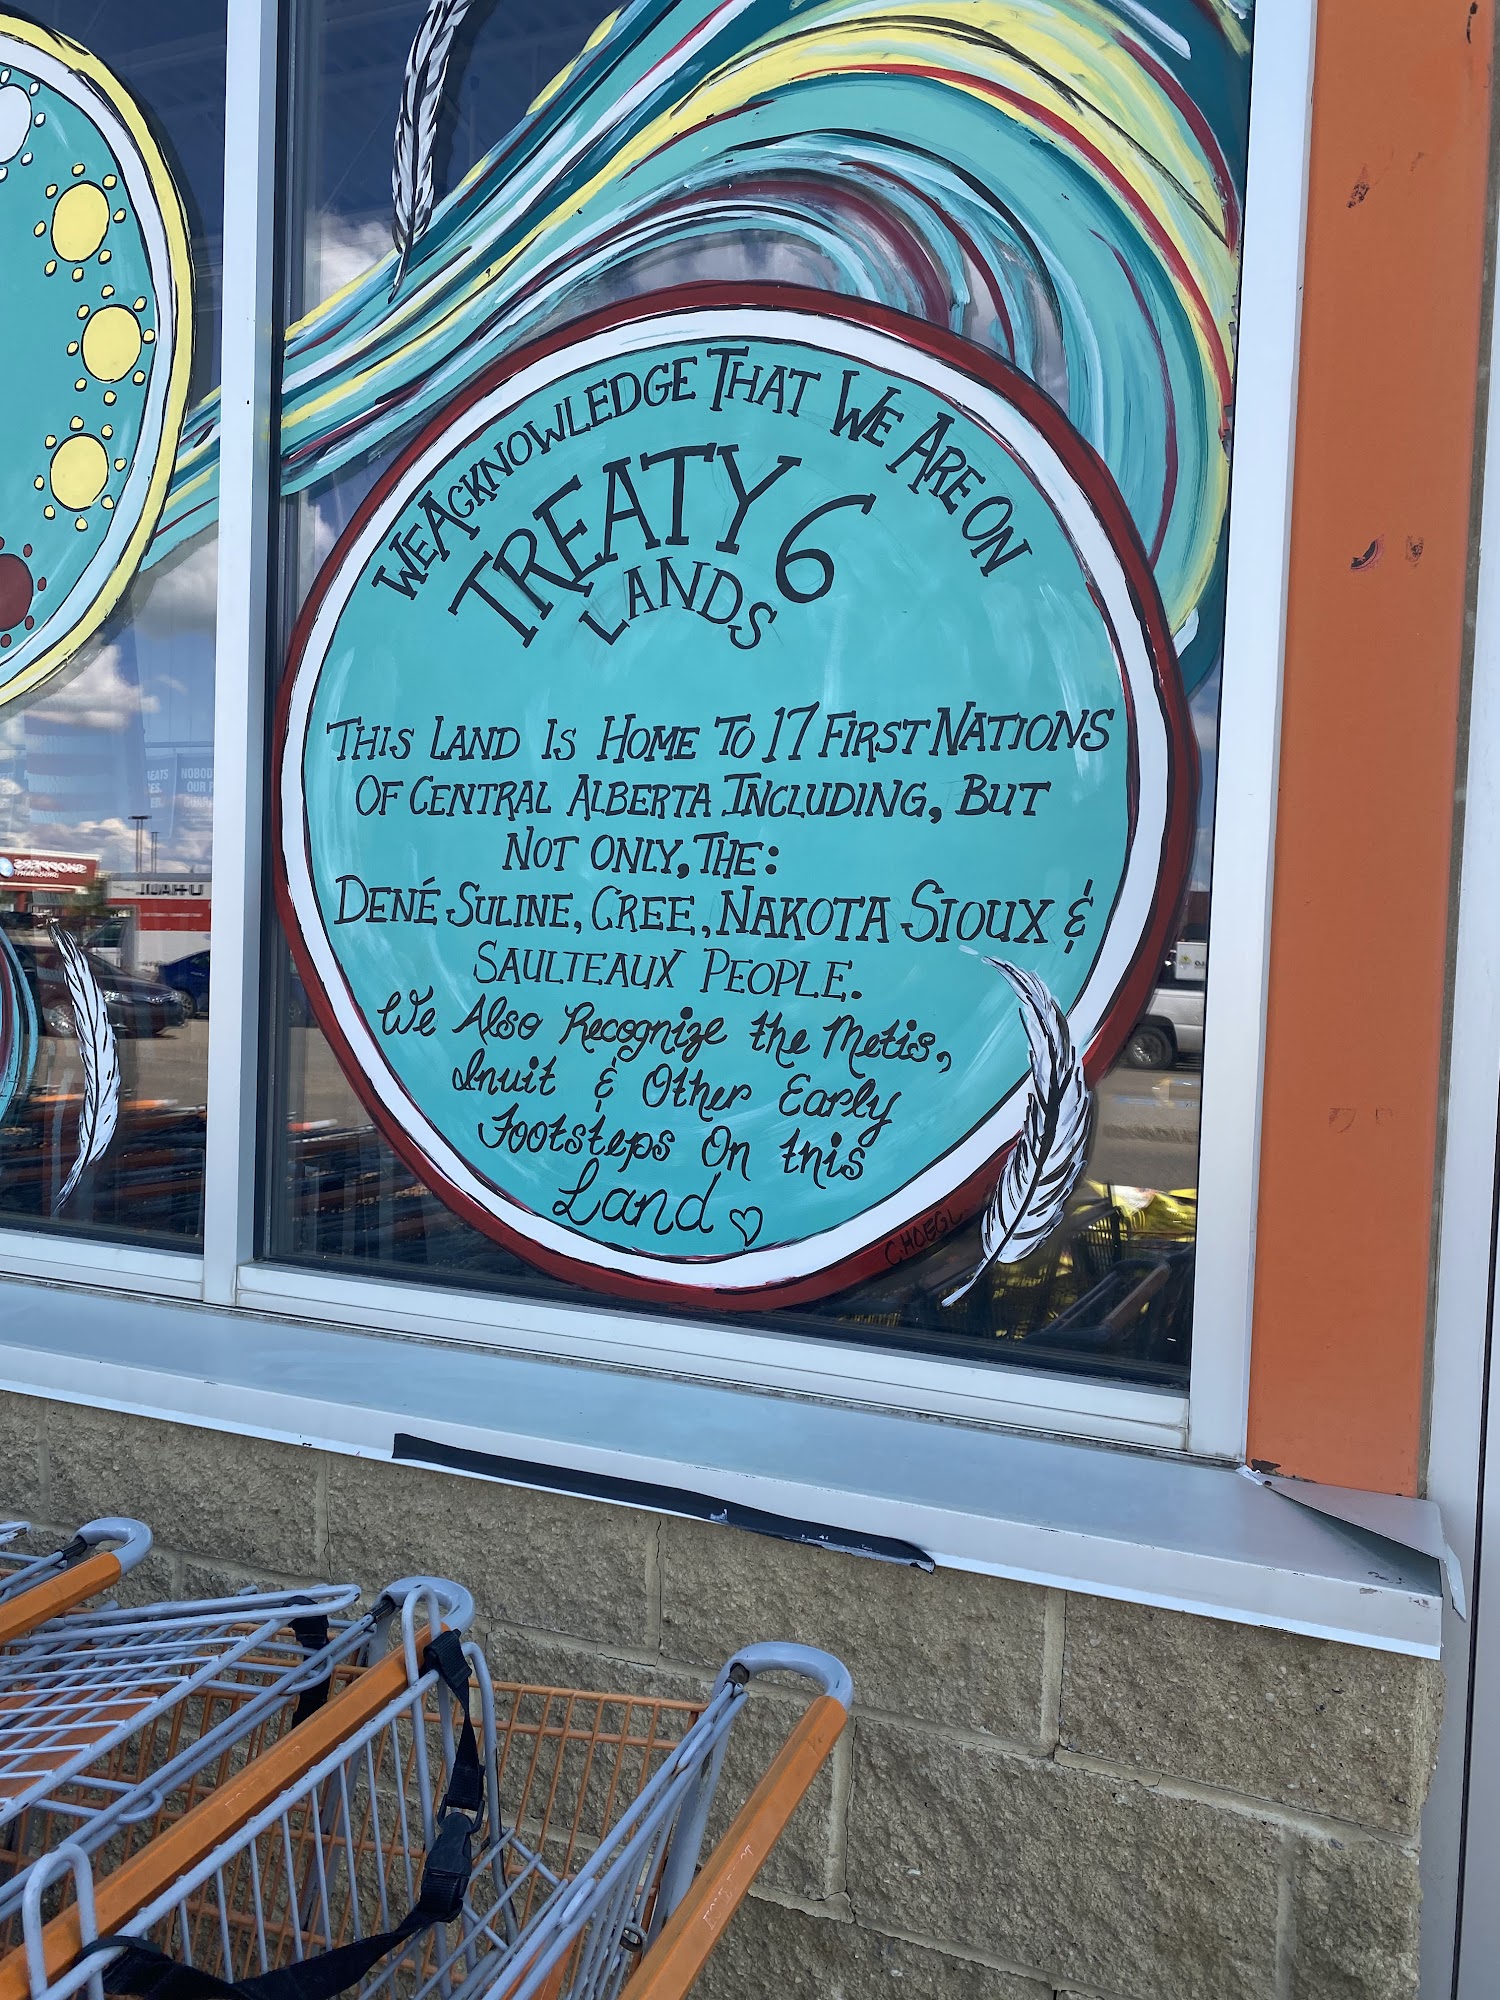 We Acknowledge That We Are On
Treaty 6
Lands
This Land Is Home To 17 First Nations
Of Central Alberta Including, But
Not Only, The:
Dené Suline, Cree, Nakota Sioux &
Saulteaux People.
We Also Recognize the Metis,
Inuit & Other Early
Footsteps On this
Land
C. HOEGL
NOBOD
OUR P
GUAR
SHOPPERS
U-HAUL